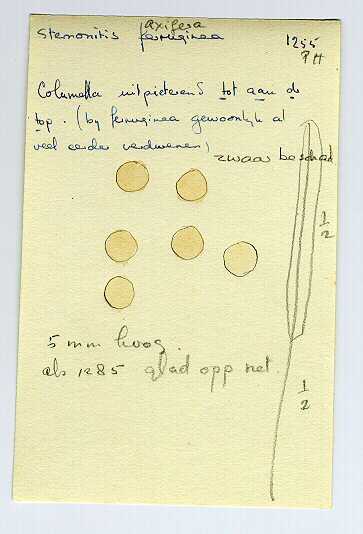 axifera
Stemonitis ferruginea
1255
PH
Columella uitpieterend tot aan de
top. (by ferruginea gewoonlyk al
veel eerder verdwenen)
zwaar beschad
1/2
5 mm hoog.
als 1285 glad opp net.
1/2